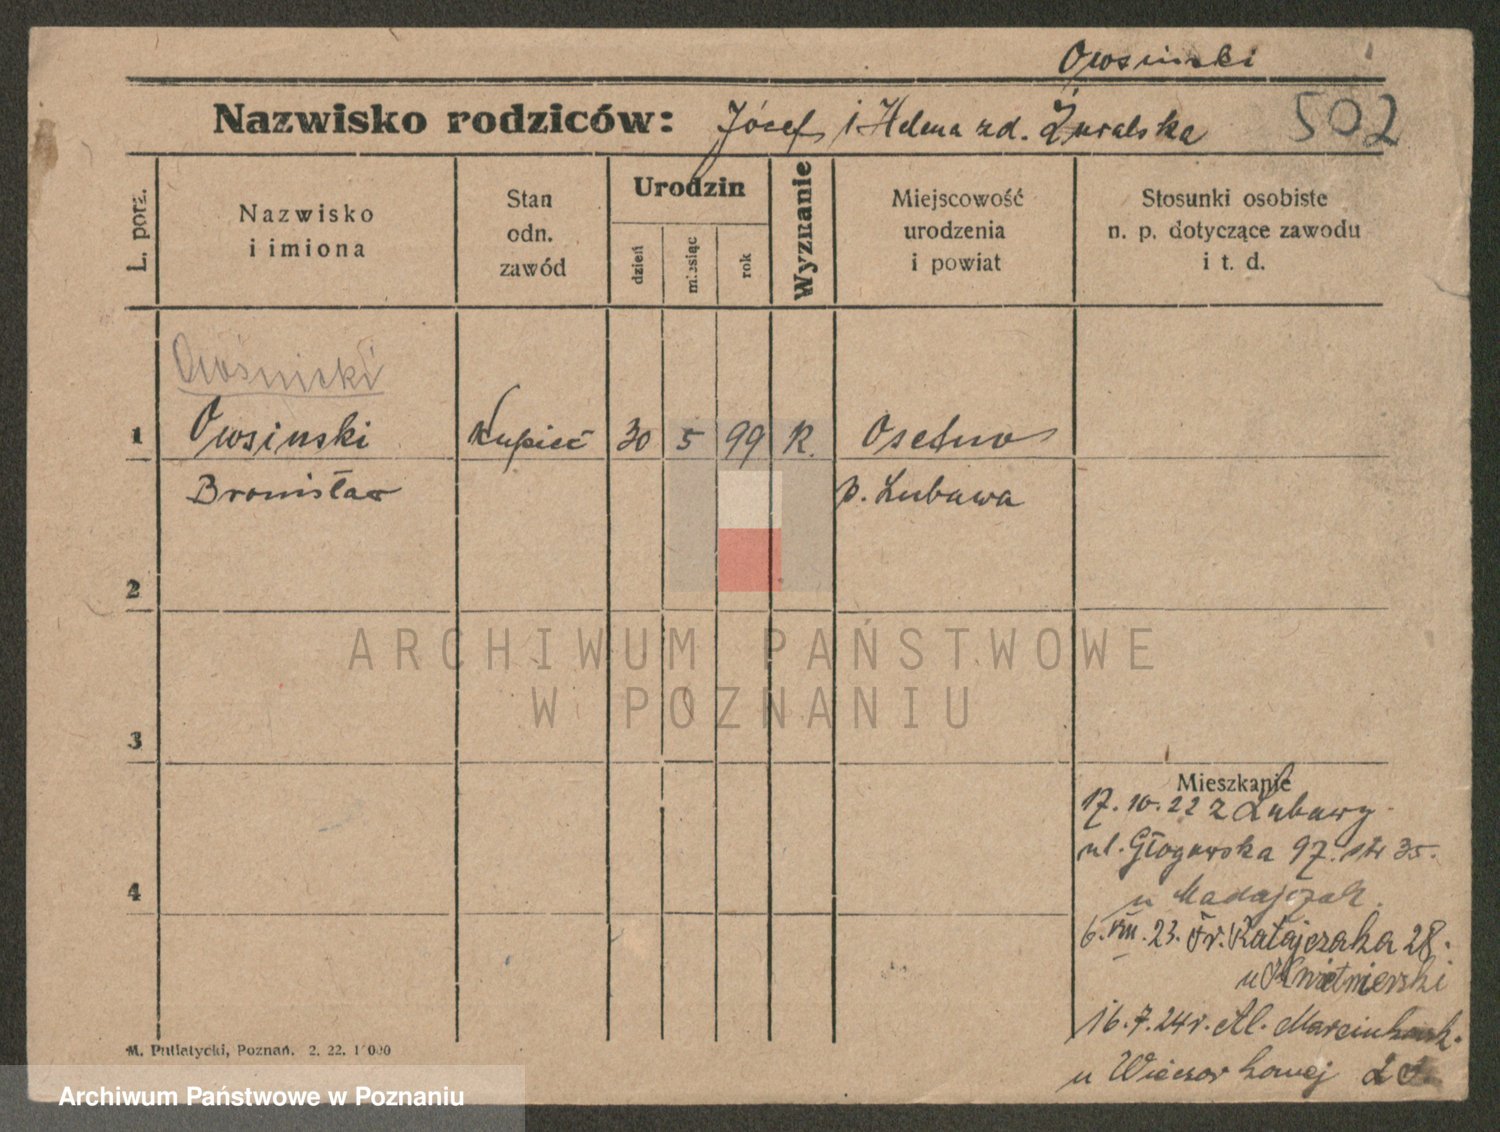 Owsinski
Nazwisko rodziców: Józef i Helena zd. Żuralska 502
L. porz.
Nazwisko
i imiona
Stan
odn.
zawód
Urodzin
dzień
miesiąc
rok
Wyznanie
Miejscowość
urodzenia
i powiat
Stosunki osobiste
n. p. dotyczące zawodu
i t. d.
Owśnicki
1 Owsinski Kupiec 30 5 99 R. Osetno
Bronisław p. Lubawa
2
ARCHIWUM PAŃSTWOWE
W POZNANIU
3
Mieszkanie
17.10.22 z Lubawy
4
ul. Głogowska 97. 35.
u Madajczak.
6.VIII.23. Fr. Ratajczaka 28.
u Kwietnierski
16.7.24r. Al. Marcinkowsk.
u Wieczorkowej
M. Putiatycki, Poznań. 2. 22. 1000
Archiwum Państwowe w Poznaniu